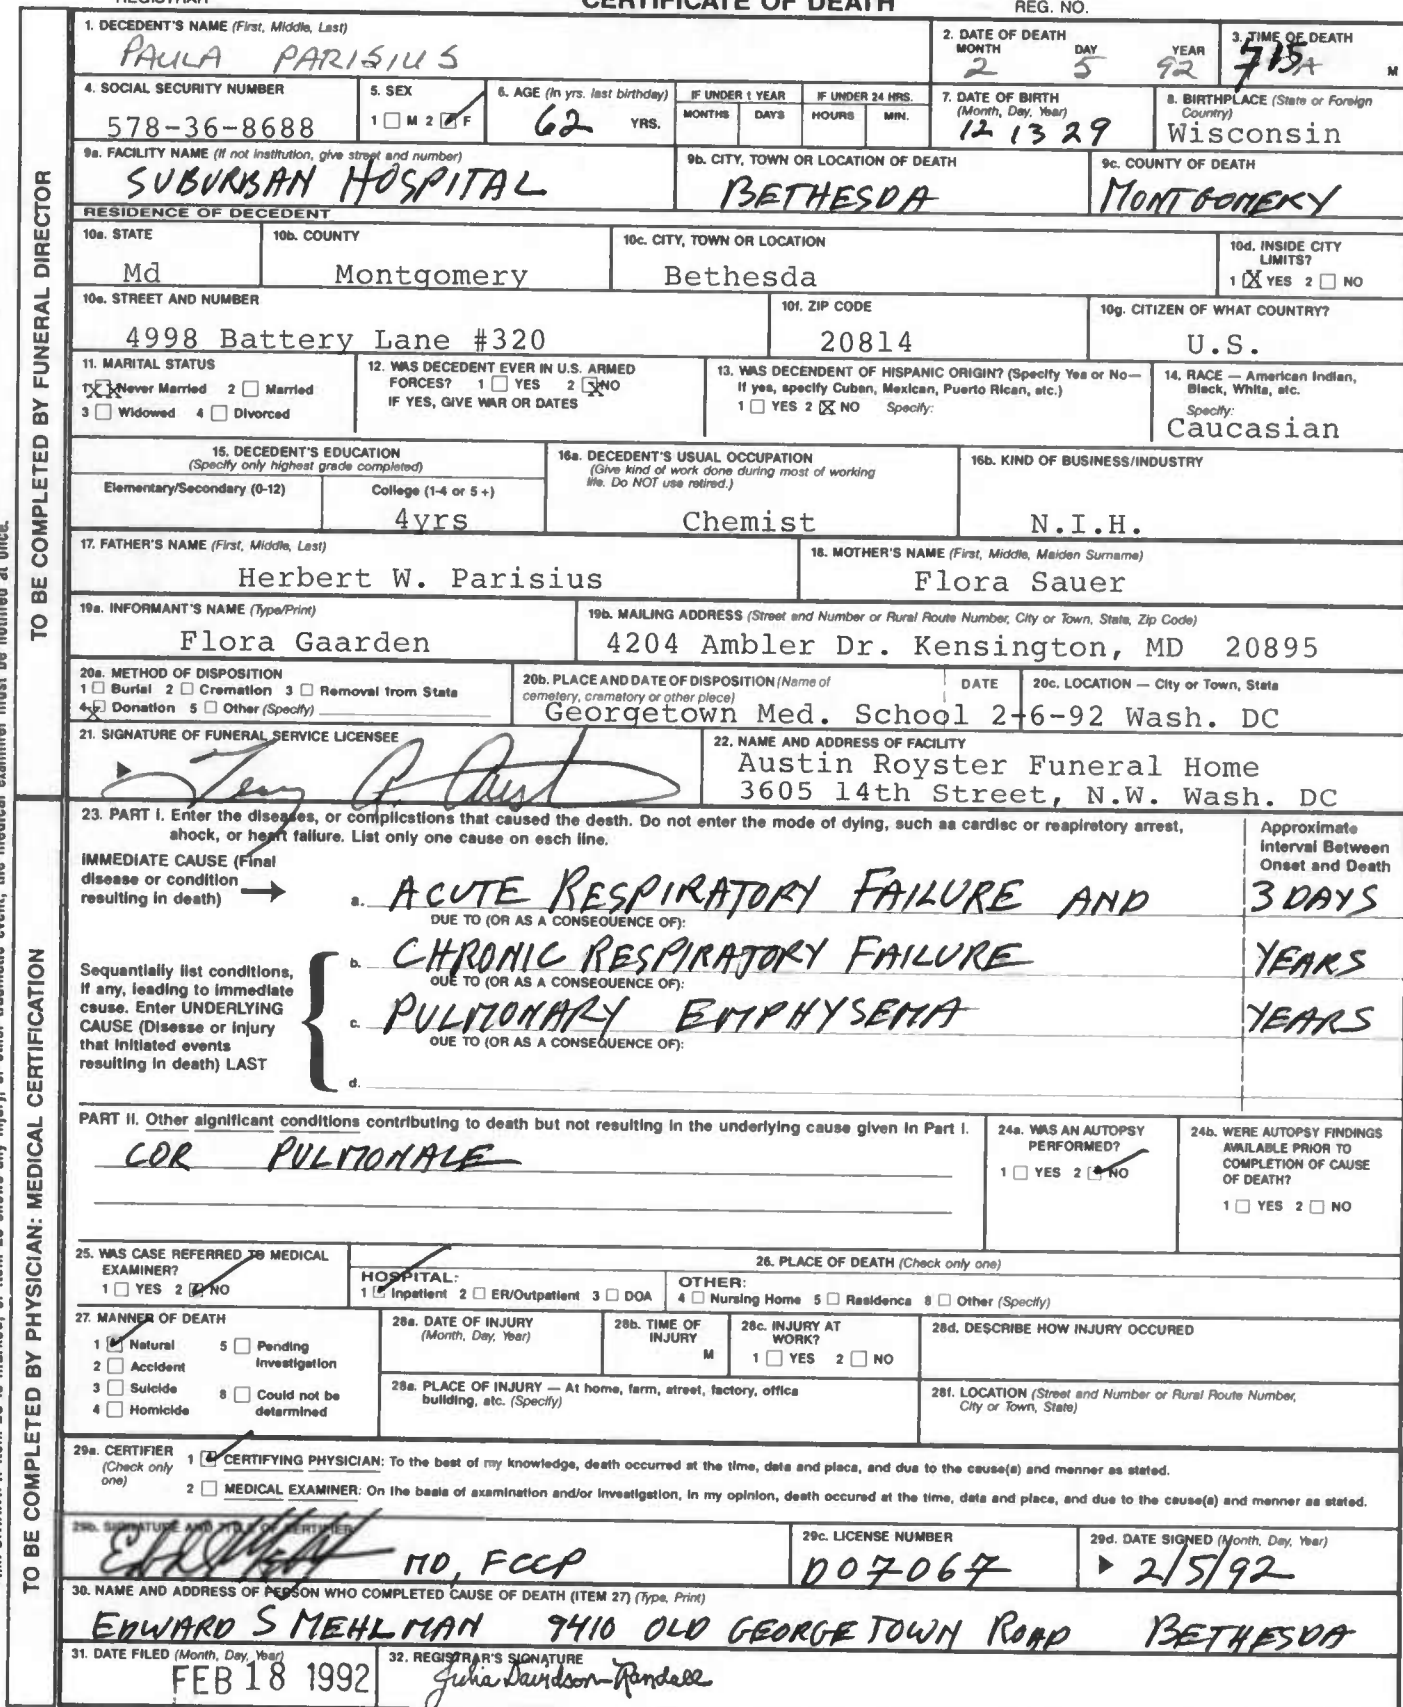 CERTIFICATE OF DEATH
REG. NO.
1. DECEDENT'S NAME (First, Middle, Last)
PAULA PARISIUS
2. DATE OF DEATH
MONTH DAY YEAR
2 5 92
3. TIME OF DEATH
715 A M
4. SOCIAL SECURITY NUMBER
578-36-8688
5. SEX
1 M 2 F
6. AGE (In yrs. last birthday)
62 YRS.
IF UNDER 1 YEAR
MONTHS DAYS
IF UNDER 24 HRS.
HOURS MIN.
7. DATE OF BIRTH
(Month, Day, Year)
12 13 29
8. BIRTHPLACE (State or Foreign
Country)
Wisconsin
9a. FACILITY NAME (If not institution, give street and number)
SUBURBAN HOSPITAL
9b. CITY, TOWN OR LOCATION OF DEATH
BETHESDA
9c. COUNTY OF DEATH
MONTGOMERY
RESIDENCE OF DECEDENT
10a. STATE
Md
10b. COUNTY
Montgomery
10c. CITY, TOWN OR LOCATION
Bethesda
10d. INSIDE CITY
LIMITS?
1 X YES 2 NO
10e. STREET AND NUMBER
4998 Battery Lane #320
10f. ZIP CODE
20814
10g. CITIZEN OF WHAT COUNTRY?
U.S.
11. MARITAL STATUS
1 XX Never Married 2 Married
3 Widowed 4 Divorced
12. WAS DECEDENT EVER IN U.S. ARMED
FORCES? 1 YES 2 X NO
IF YES, GIVE WAR OR DATES
13. WAS DECENDENT OF HISPANIC ORIGIN? (Specify Yes or No—
If yes, specify Cuban, Mexican, Puerto Rican, etc.)
1 YES 2 X NO Specify:
14. RACE — American Indian,
Black, White, etc.
Specify:
Caucasian
15. DECEDENT'S EDUCATION
(Specify only highest grade completed)
Elementary/Secondary (0-12)
College (1-4 or 5+)
4yrs
16a. DECEDENT'S USUAL OCCUPATION
(Give kind of work done during most of working
life. Do NOT use retired.)
Chemist
16b. KIND OF BUSINESS/INDUSTRY
N.I.H.
17. FATHER'S NAME (First, Middle, Last)
Herbert W. Parisius
18. MOTHER'S NAME (First, Middle, Maiden Surname)
Flora Sauer
19a. INFORMANT'S NAME (Type/Print)
Flora Gaarden
19b. MAILING ADDRESS (Street and Number or Rural Route Number, City or Town, State, Zip Code)
4204 Ambler Dr. Kensington, MD 20895
20a. METHOD OF DISPOSITION
1 Burial 2 Cremation 3 Removal from State
4 X Donation 5 Other (Specify)
20b. PLACE AND DATE OF DISPOSITION (Name of
cemetery, crematory or other place)
DATE
20c. LOCATION — City or Town, State
Georgetown Med. School 2-6-92 Wash. DC
21. SIGNATURE OF FUNERAL SERVICE LICENSEE
22. NAME AND ADDRESS OF FACILITY
Austin Royster Funeral Home
3605 14th Street, N.W. Wash. DC
23. PART I. Enter the diseases, or complications that caused the death. Do not enter the mode of dying, such as cardiac or respiratory arrest,
shock, or heart failure. List only one cause on each line.
Approximate
Interval Between
Onset and Death
IMMEDIATE CAUSE (Final
disease or condition
resulting in death)
a. ACUTE RESPIRATORY FAILURE AND
3 DAYS
DUE TO (OR AS A CONSEQUENCE OF):
b. CHRONIC RESPIRATORY FAILURE
YEARS
DUE TO (OR AS A CONSEQUENCE OF):
Sequentially list conditions,
if any, leading to immediate
cause. Enter UNDERLYING
CAUSE (Disease or injury
that initiated events
resulting in death) LAST
c. PULMONARY EMPHYSEMA
YEARS
DUE TO (OR AS A CONSEQUENCE OF):
d.
PART II. Other significant conditions contributing to death but not resulting in the underlying cause given in Part I.
COR PULMONALE
24a. WAS AN AUTOPSY
PERFORMED?
1 YES 2 NO
24b. WERE AUTOPSY FINDINGS
AVAILABLE PRIOR TO
COMPLETION OF CAUSE
OF DEATH?
1 YES 2 NO
25. WAS CASE REFERRED TO MEDICAL
EXAMINER?
1 YES 2 NO
26. PLACE OF DEATH (Check only one)
HOSPITAL:
1 Inpatient 2 ER/Outpatient 3 DOA
OTHER:
4 Nursing Home 5 Residence 6 Other (Specify)
27. MANNER OF DEATH
1 Natural 5 Pending
Investigation
2 Accident
3 Suicide 6 Could not be
determined
4 Homicide
28a. DATE OF INJURY
(Month, Day, Year)
28b. TIME OF
INJURY
M
28c. INJURY AT
WORK?
1 YES 2 NO
28d. DESCRIBE HOW INJURY OCCURED
28e. PLACE OF INJURY — At home, farm, street, factory, office
building, etc. (Specify)
28f. LOCATION (Street and Number or Rural Route Number,
City or Town, State)
29a. CERTIFIER
(Check only
one)
1 CERTIFYING PHYSICIAN: To the best of my knowledge, death occurred at the time, date and place, and due to the cause(s) and manner as stated.
2 MEDICAL EXAMINER: On the basis of examination and/or investigation, in my opinion, death occured at the time, date and place, and due to the cause(s) and manner as stated.
29b. SIGNATURE AND TITLE OF CERTIFIER
MD, FCCP
29c. LICENSE NUMBER
D07067
29d. DATE SIGNED (Month, Day, Year)
2/5/92
30. NAME AND ADDRESS OF PERSON WHO COMPLETED CAUSE OF DEATH (ITEM 27) (Type, Print)
EDWARD S MEHLMAN 9410 OLD GEORGETOWN ROAD BETHESDA
31. DATE FILED (Month, Day, Year)
FEB 18 1992
32. REGISTRAR'S SIGNATURE
Julia Davidson-Randall
TO BE COMPLETED BY FUNERAL DIRECTOR
TO BE COMPLETED BY PHYSICIAN: MEDICAL CERTIFICATION